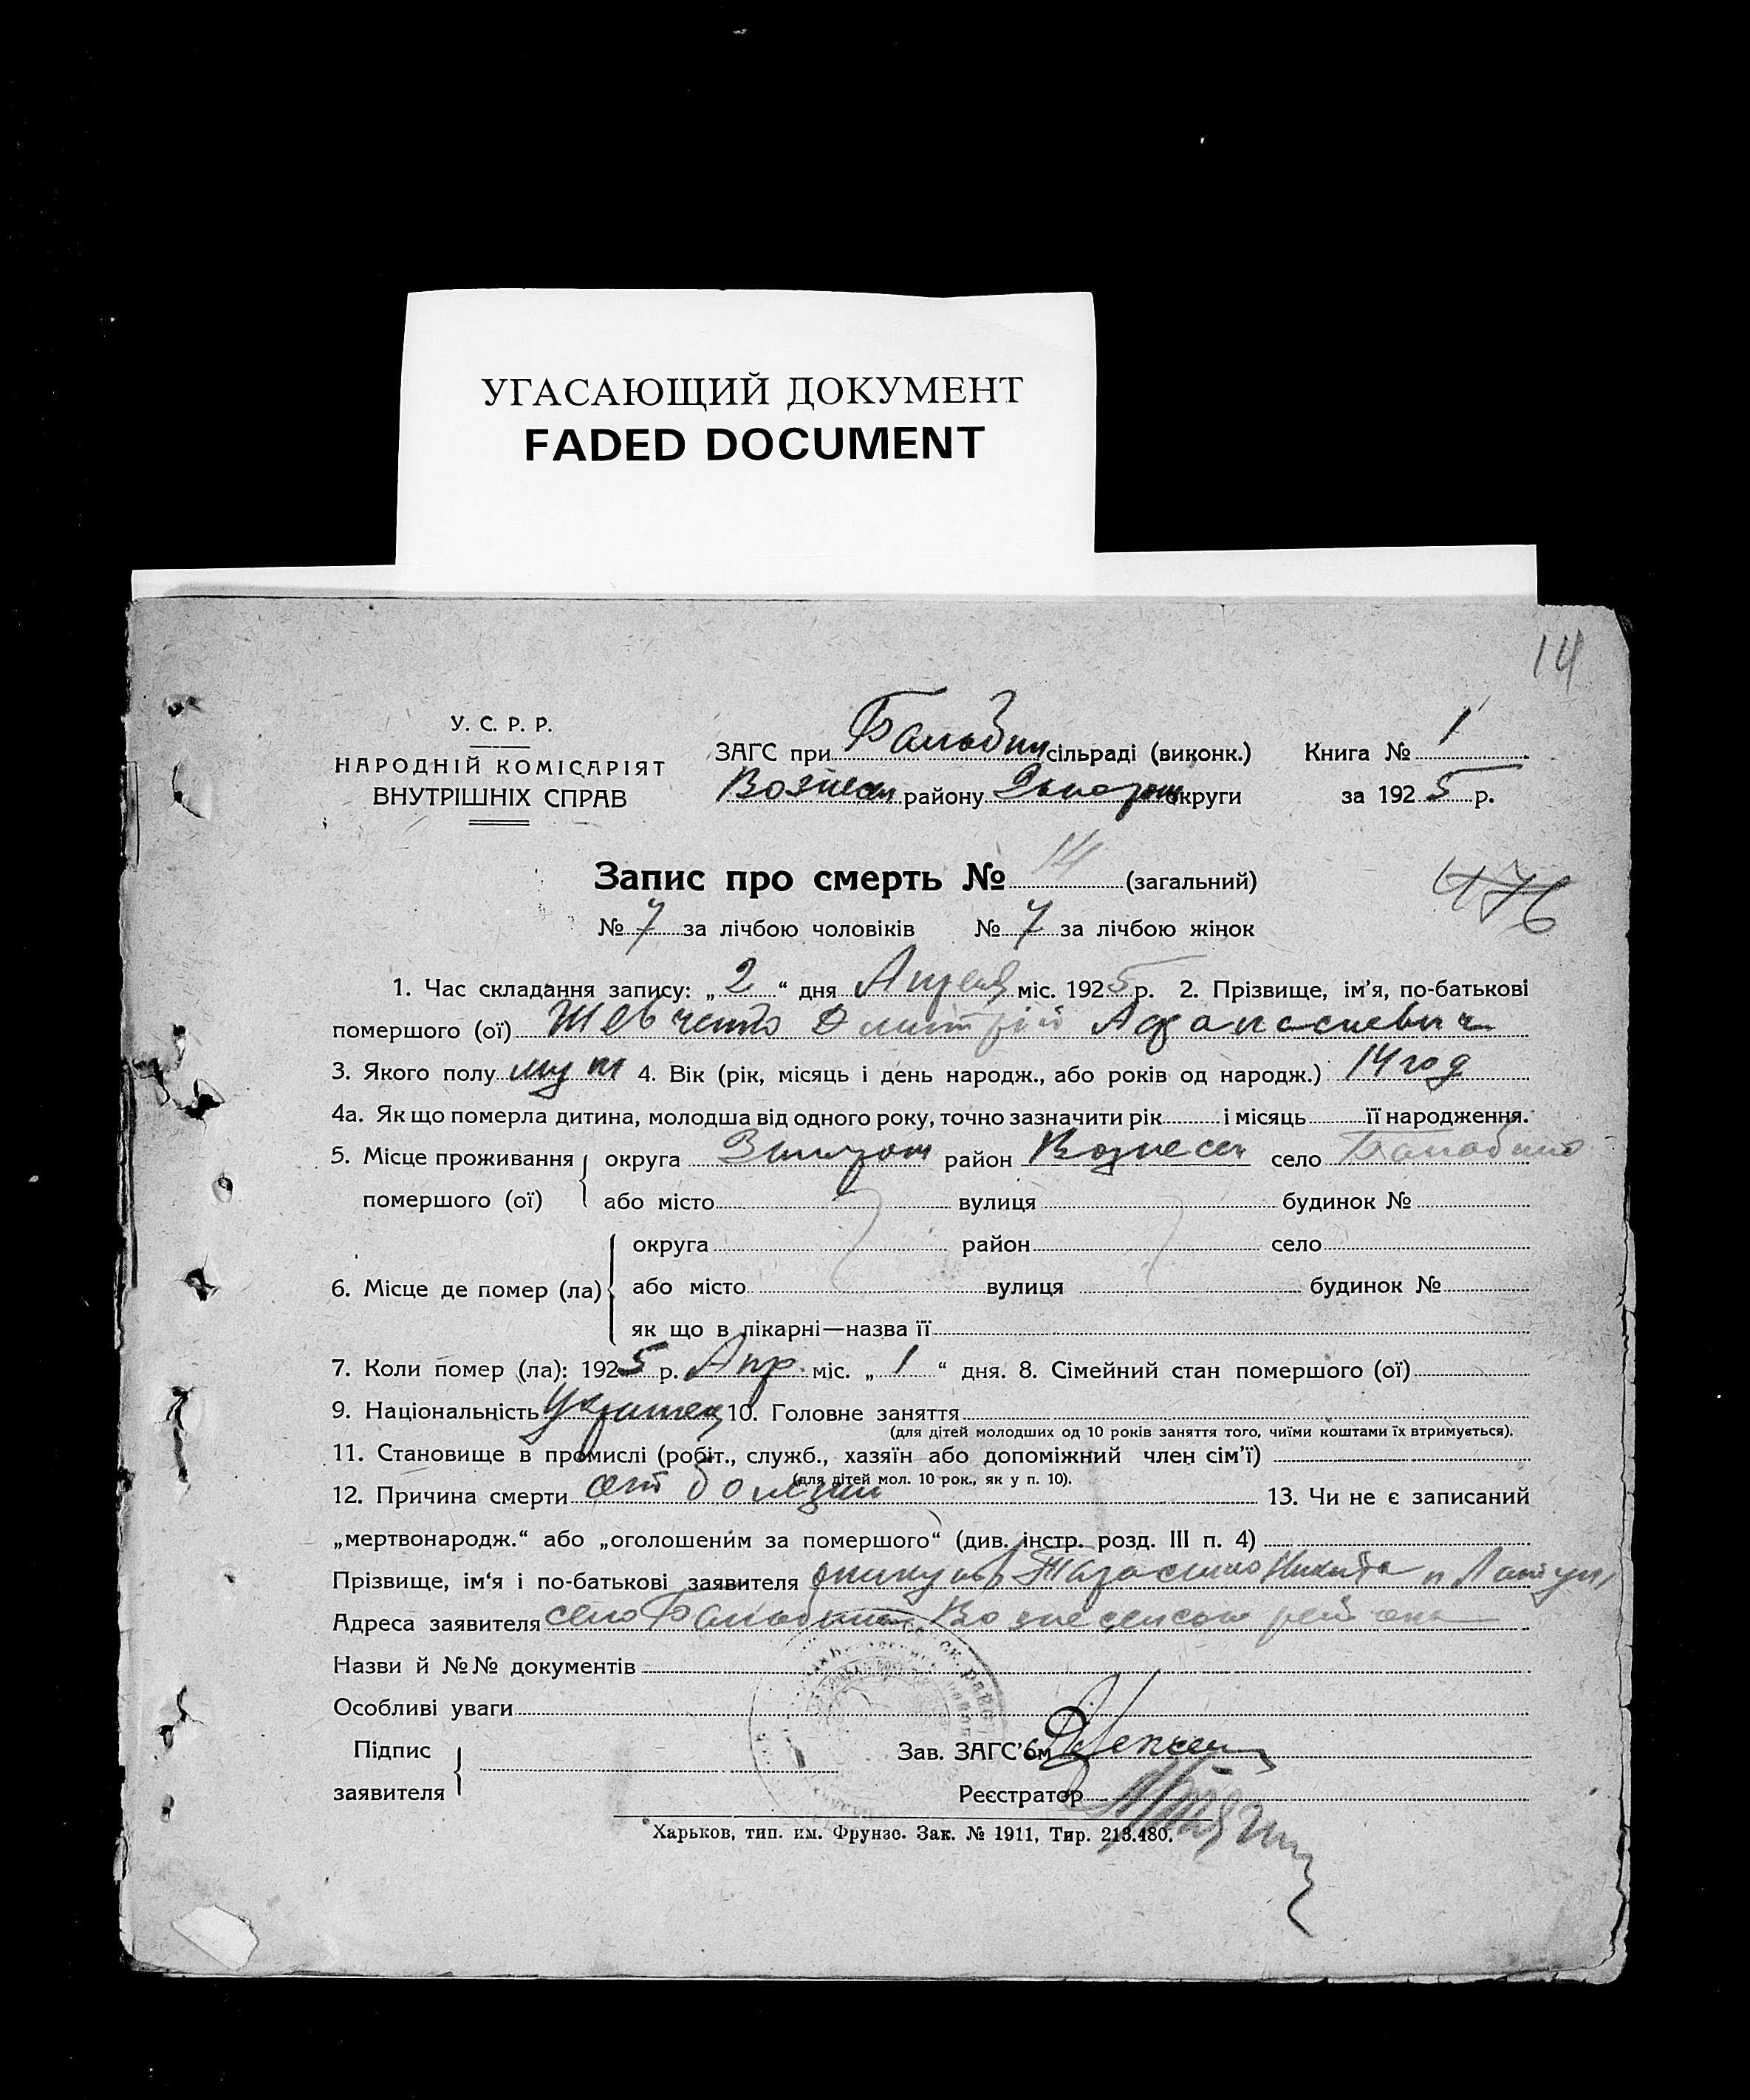 УГАСАЮЩИЙ ДОКУМЕНТ
FADED DOCUMENT
14
У. С. Р. Р.
НАРОДНІЙ КОМІСАРІЯТ
ВНУТРІШНІХ СПРАВ
ЗАГС при сільраді (виконк.) Книга № 1
Вознесен району округи за 1925 р.
Запис про смерть № 14 (загальний)
476
№ 7 за лічбою чоловіків № 7 за лічбою жінок
1. Час складання запису: „2“ дня Апреля міс. 1925 р. 2. Прізвище, ім’я, по-батькові
помершого (ої) Шевченко Дмитрій Афанасиевич
3. Якого полу муж 4. Вік (рік, місяць і день народж., або років од народж.) 14 год
4а. Як що померла дитина, молодша від одного року, точно зазначити рік і місяць її народження.
5. Місце проживання округа район Вознесен село Балабино
помершого (ої) або місто вулиця будинок №
округа район село
6. Місце де помер (ла) або місто вулиця будинок №
як що в лікарні—назва її
7. Коли помер (ла): 1925 р. Апр. міс. „1“ дня. 8. Сімейний стан помершого (ої)
9. Національність Украинец 10. Головне заняття
(для дітей молодших од 10 років заняття того, чиїми коштами їх втримується).
11. Становище в промислі (робіт., служб., хазяїн або допоміжний член сім’ї)
(для дітей мол. 10 рок., як у п. 10).
12. Причина смерти от болезни 13. Чи не є записаний
„мертвонародж.“ або „оголошеним за помершого“ (див. інстр. розд. III п. 4)
Прізвище, ім‘я і по-батькові заявителя опикунов Никита и
Адреса заявителя село Балабино Вознесенского района
Назви й №№ документів
Особливі уваги
Підпис Зав. ЗАГС’ом
заявителя Реєстратор
Харьков, тип. им. Фрунзе. Зак. № 1911, Тир. 213.480.